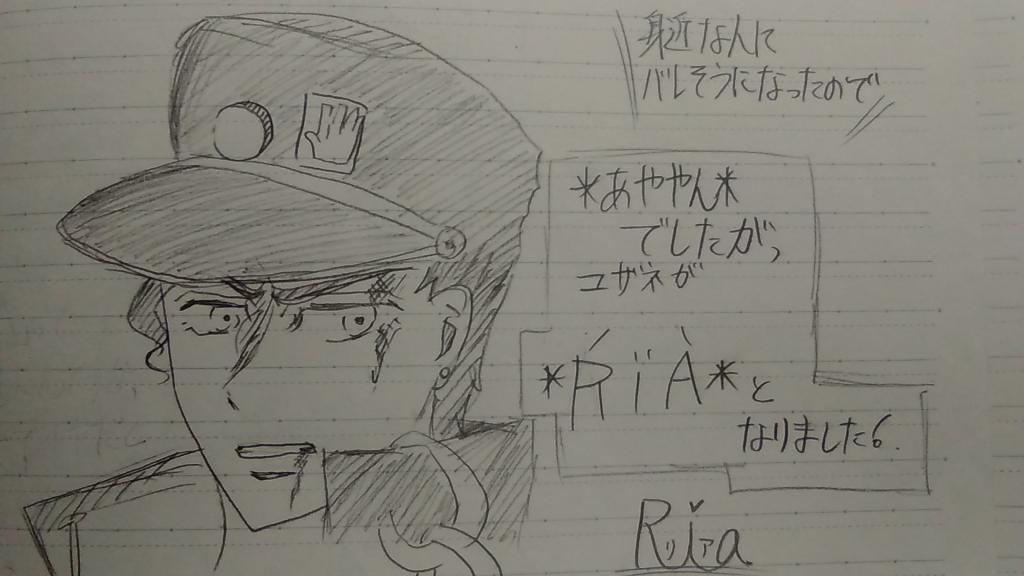 身近なんに
バレそうになったので
*あややん*
でしたがっ
ユザネが
*ŔïÀ*と
なりました6.
Ria
リア